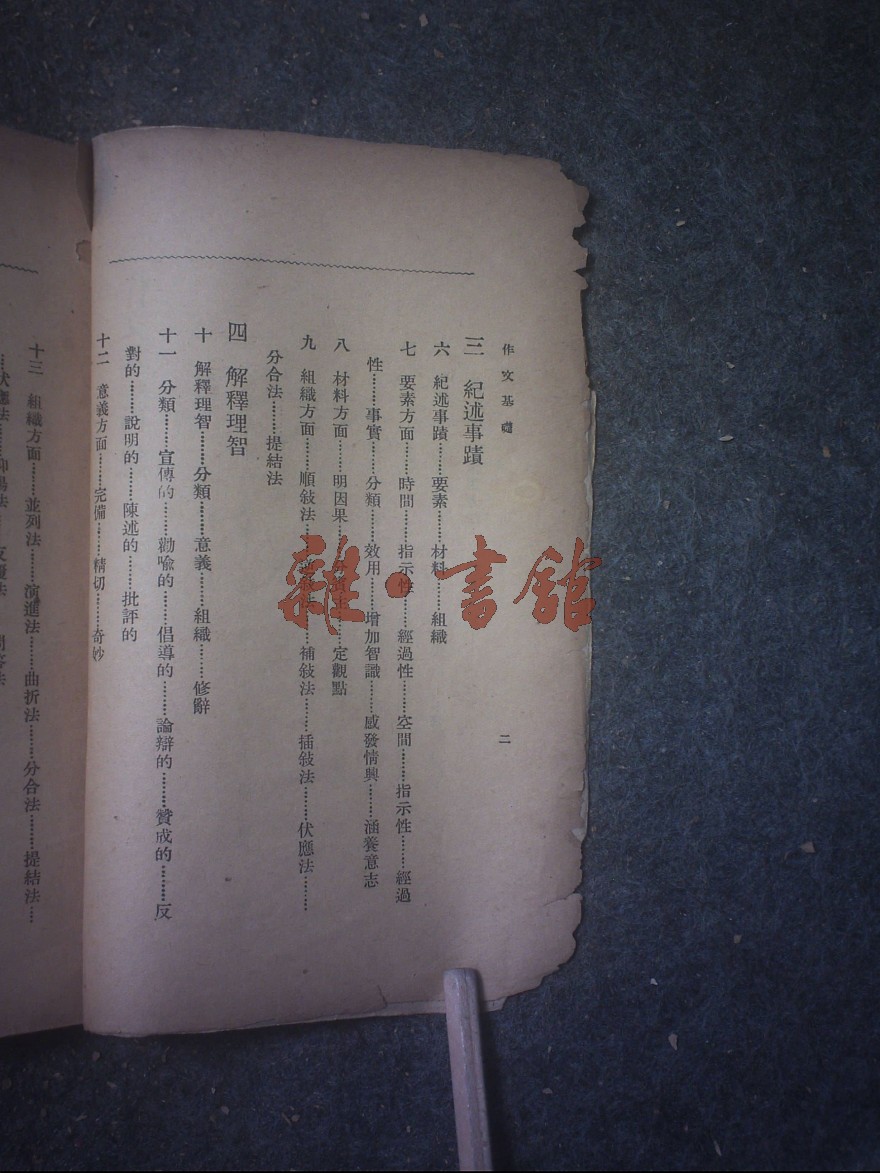 作文基礎
二
三 紀述事蹟
六 紀述事蹟………要素………材料………組織
七 要素方面………時間………指示性………經過性………空間………指示性………經過
性………事實………分類………效用………增加智識………感發情興………涵養意志
八 材料方面………明因果………定觀點
九 組織方面………順敍法………補敍法………插敍法………伏應法………
分合法………提結法
四 解釋理智
十 解釋理智………分類………意義………組織………修辭
十一 分類………宣傳的………勸喩的………倡導的………論辯的………贊成的………反
對的………說明的………陳述的………批評的
十二 意義方面………完備………精切………奇妙
十三 組織方面………並列法………演進法………曲折法………分合法………提結法……
雜·書館